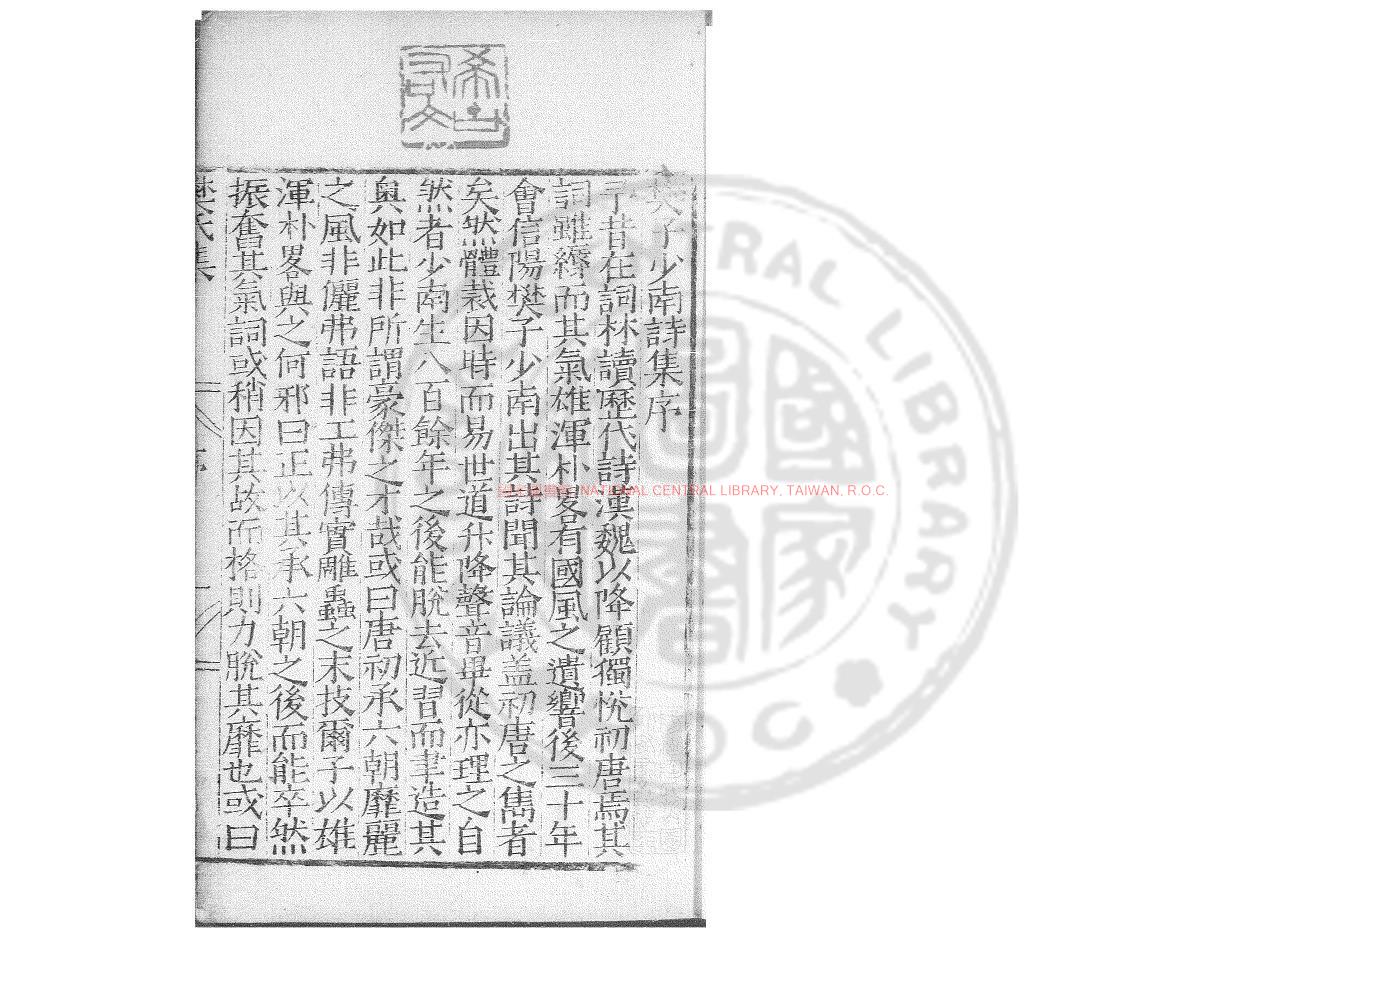 樊子少南詩集序
予昔在詞林讀歷代詩漢魏以降顧獨悅初唐焉其
詞雖縟而其氣雄渾朴畧有國風之遺響後三十年
會信陽樊子少南出其詩聞其論議盖初唐之雋者
矣然體裁因時而易世道升降聲音畢從亦理之自
然者少南生八百餘年之後能脫去近習而聿造其
奧如此非所謂豪傑之才哉或曰唐初承六朝靡麗
之風非儷弗語非工弗傳實雕蟲之末技爾子以雄
渾朴畧與之何邪曰正以其承六朝之後而能卒然
振奮其氣詞或稍因其故而格則力脫其靡也或曰
樊氏集
序
NATIONAL CENTRAL LIBRARY, TAIWAN, R.O.C.
CENTRAL LIBRARY
ROC
國家圖書